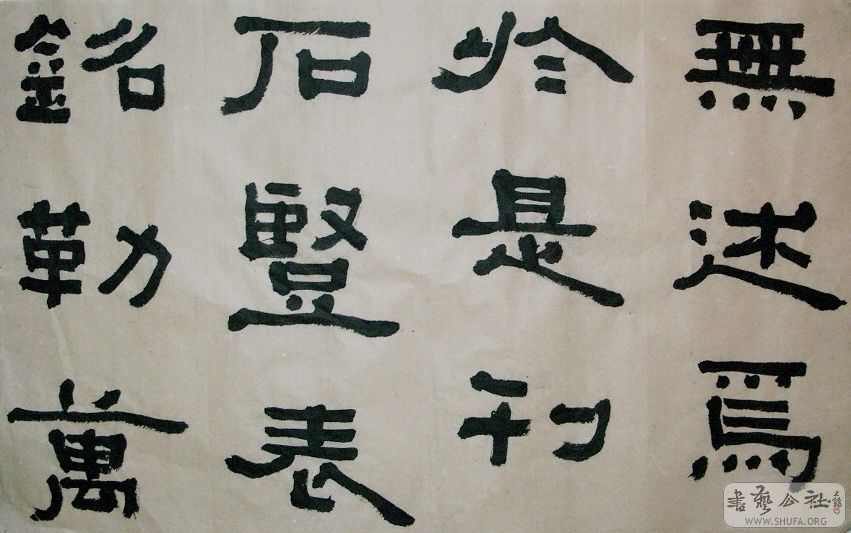 無述焉
於是刊
石豎表
銘勒萬
書藝公社
WWW.SHUFA.ORG